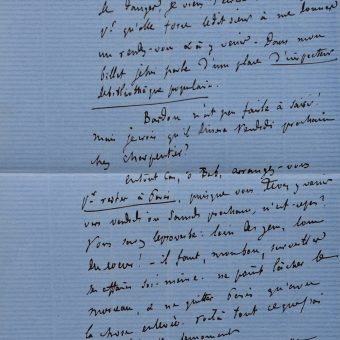 le danger, je viens d'écrire
qu'elle force ledit sieur à me donner
un rendez-vous & à y venir. Dans mon
billet je lui parle d'une place d'inspecteur
des bibliothèques populaires.
Bardoux n'est pas facile à saisir!
mais je crois qu'il dînera Vendredi prochain
chez Charpentier?
en tout cas, ô Bab, arrangez-vous
pr rester à Paris, puisque vous devez y venir
vers vendredi ou samedi prochain, n'est-ce pas?
Vous m'avez reproché: loin des yeux, loin
du coeur! – il faut, mon bon, surveiller
ses affaires soi-même. ne point lâcher le
morceau, & ne quitter Paris qu'avec
la chose enlevée. Voilà tout ce que je puis